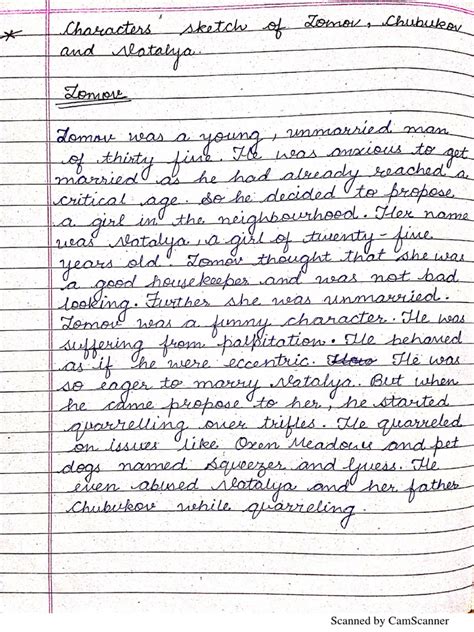 * Characters' sketch of Lomov, Chubukov
and Natalya.
Lomov
Lomov was a young, unmarried man
of thirty five. He was anxious to get
married as he had already reached a
critical age. So he decided to propose
a girl in the neighbourhood. Her name
was Natalya, a girl of twenty-five
years old. Lomov thought that she was
a good housekeeper and was not bad
looking. Further she was unmarried.
Lomov was a funny character. He was
suffering from palpitation. He behaved
as if he were eccentric. He was
so eager to marry Natalya. But when
he came propose to her, he started
quarrelling over trifles. He quarreled
on issues like Oxen Meadows and pet
dogs named Squeezer and Guess. He
even abused Natalya and her father
Chubukov while quarreling.
Scanned by CamScanner